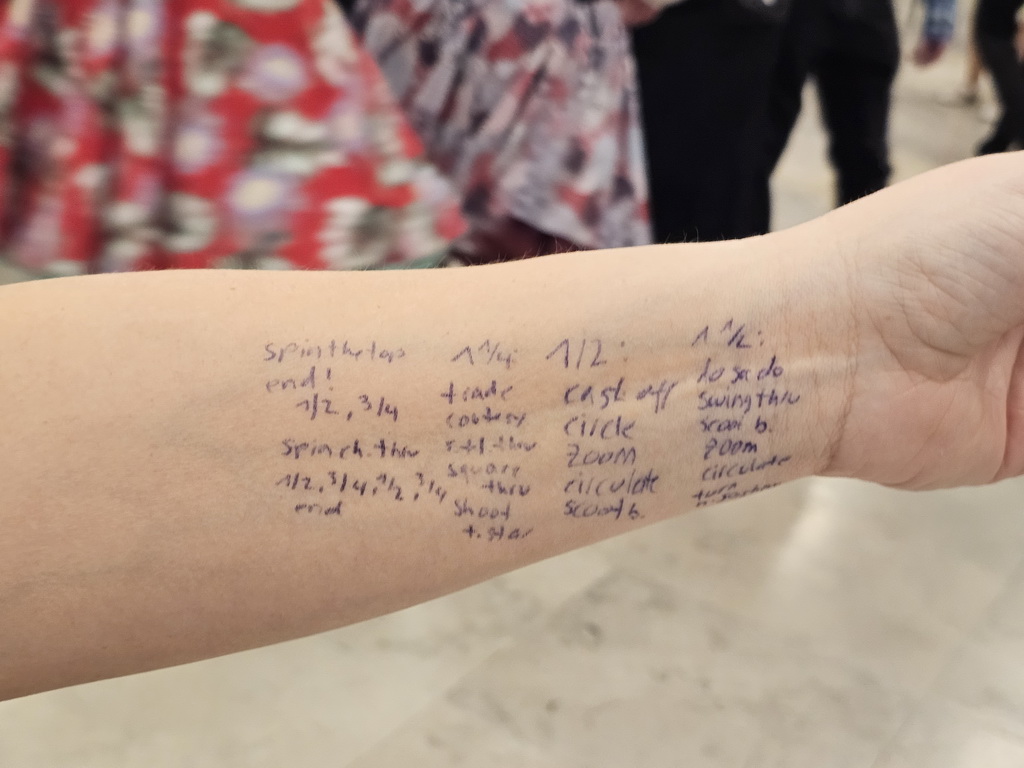 spinthetop
end!
1/2, 3/4
spinch.thru
1/2, 3/4, 1/2, 3/4
end
1 1/4:
trade
courtesy
squarre
thru
shoot
t. star
1/2:
cast off
circle
zoom
circulate
scoot b.
1 1/2:
dosado
swing thru
scoot b.
zoom
circulate
turn